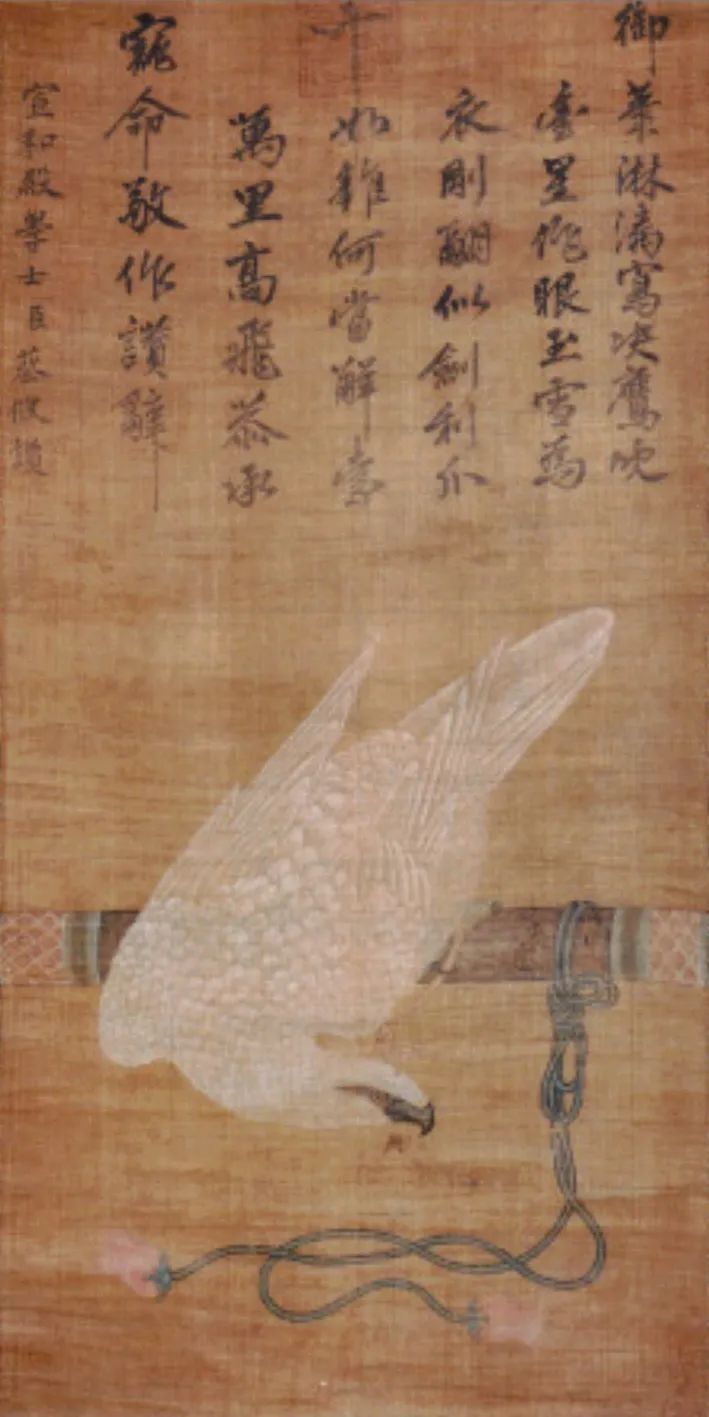 御筆淋漓寫决鷹
星作眼玉雪爲
衣剛翮似劍利爪
如錐何當解索
萬里高飛恭承
寵命敬作讚辭
宣和殿學士臣蔡攸